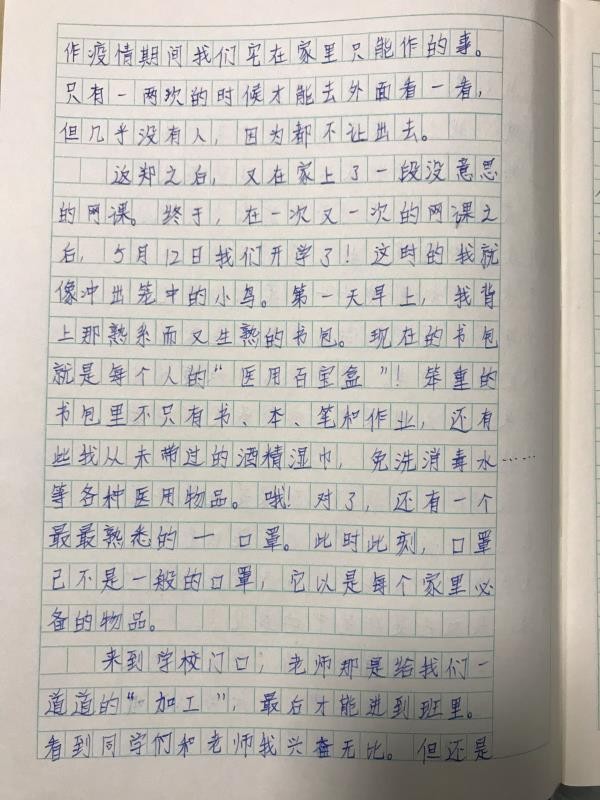 作疫情期间我们宅在家里只能作的事。
只有一两次的时候才能去外面看一看，
但几乎没有人，因为都不让出去。
返郑之后，又在家上了一段没意思
的网课。终于，在一次又一次的网课之
后，5月12日我们开学了！这时的我就
像冲出笼中的小鸟。第一天早上，我背
上那熟系而又生熟的书包。现在的书包
就是每个人的“医用百宝盒”！笨重的
书包里不只有书、本、笔和作业，还有
些我从未带过的酒精湿巾，免洗消毒水……
等各种医用物品。哦！对了，还有一个
最最熟悉的一口罩。此时此刻，口罩
已不是一般的口罩，它以是每个家里必
备的物品。
来到学校门口，老师那是给我们一
道道的“加工”，最后才能进到班里。
看到同学们和老师我兴奋无比。但还是